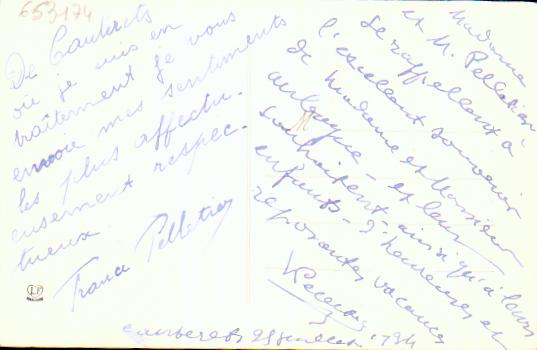 653174
De Cauterets
où je suis en
traitement je vous
envoie mes sentiments
les plus affectu-
eusement respec-
tueux
Pelletier
Madame
et M. Pelletier
se rappellent à
l'excellent souvenir
de Madame et Monsieur
et leur
souhaitent ainsi qu'à leurs
enfants d'heureuses et
reposantes vacances
Cauterets